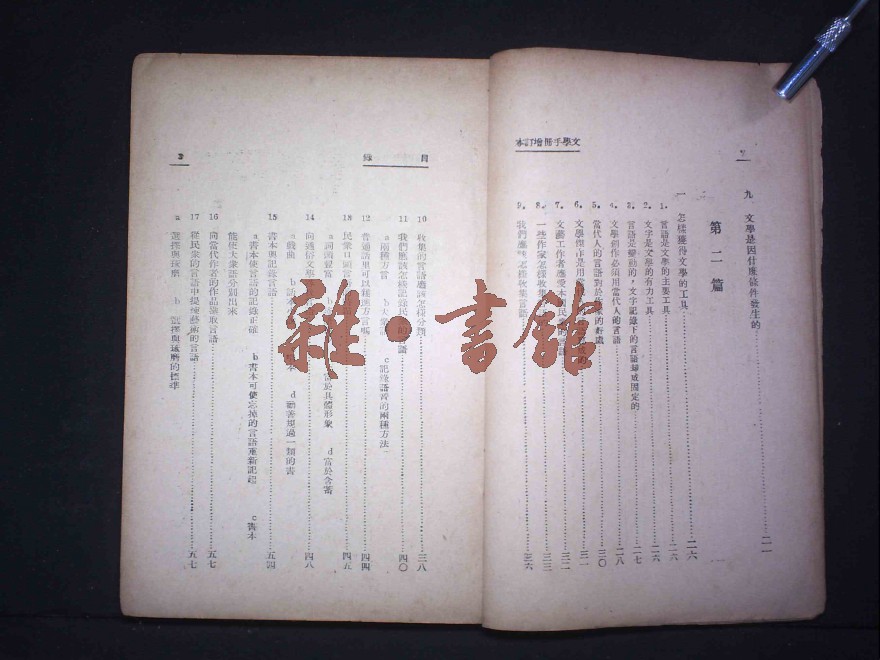 文學手冊增訂本
2
九 文學是因什麼條件發生的 二一
第二篇
一 怎樣獲得文學的工具 二六
1. 言語是文學的主要工具 二六
2. 文字是文學的有力工具 二六
3. 言語是變動的，文字記錄下的言語却成固定的 二七
4. 文學創作必須用當代人的言語 二八
5. 當代人的言語對於 的好處 三〇
6. 文學 作是用 的 三一
7. 文藝工作者應愛本 民 語 三二
8. 一些作家怎樣收集 三三
9. 我們應該怎樣收集言語 三六
目錄
3
10 收集的言語應該怎樣分類 三八
11 我們應該怎樣記錄民 的 語 四〇
a 兩種方言 b 大 c 記錄語言的兩種方法
12 普通話也可以 方言 四四
13 民衆口頭 四五
a 詞頭豐富 富於具體形象 d 富於含蓄
14 向通俗文學 四八
a 戲曲 b 話本 本 d 勸善規過一類的書
15 書本與記錄言語 五四
a 書本使言語的記錄正確 b 書本可使忘掉的言語重新記起 c 書本
能使大衆語分別出來
16 向當代作者的作品攝取言語 五七
17 從民衆的言語中提煉藝術的言語 五七
a 選擇與琢磨 b 選擇與琢磨的標準
雜·書館